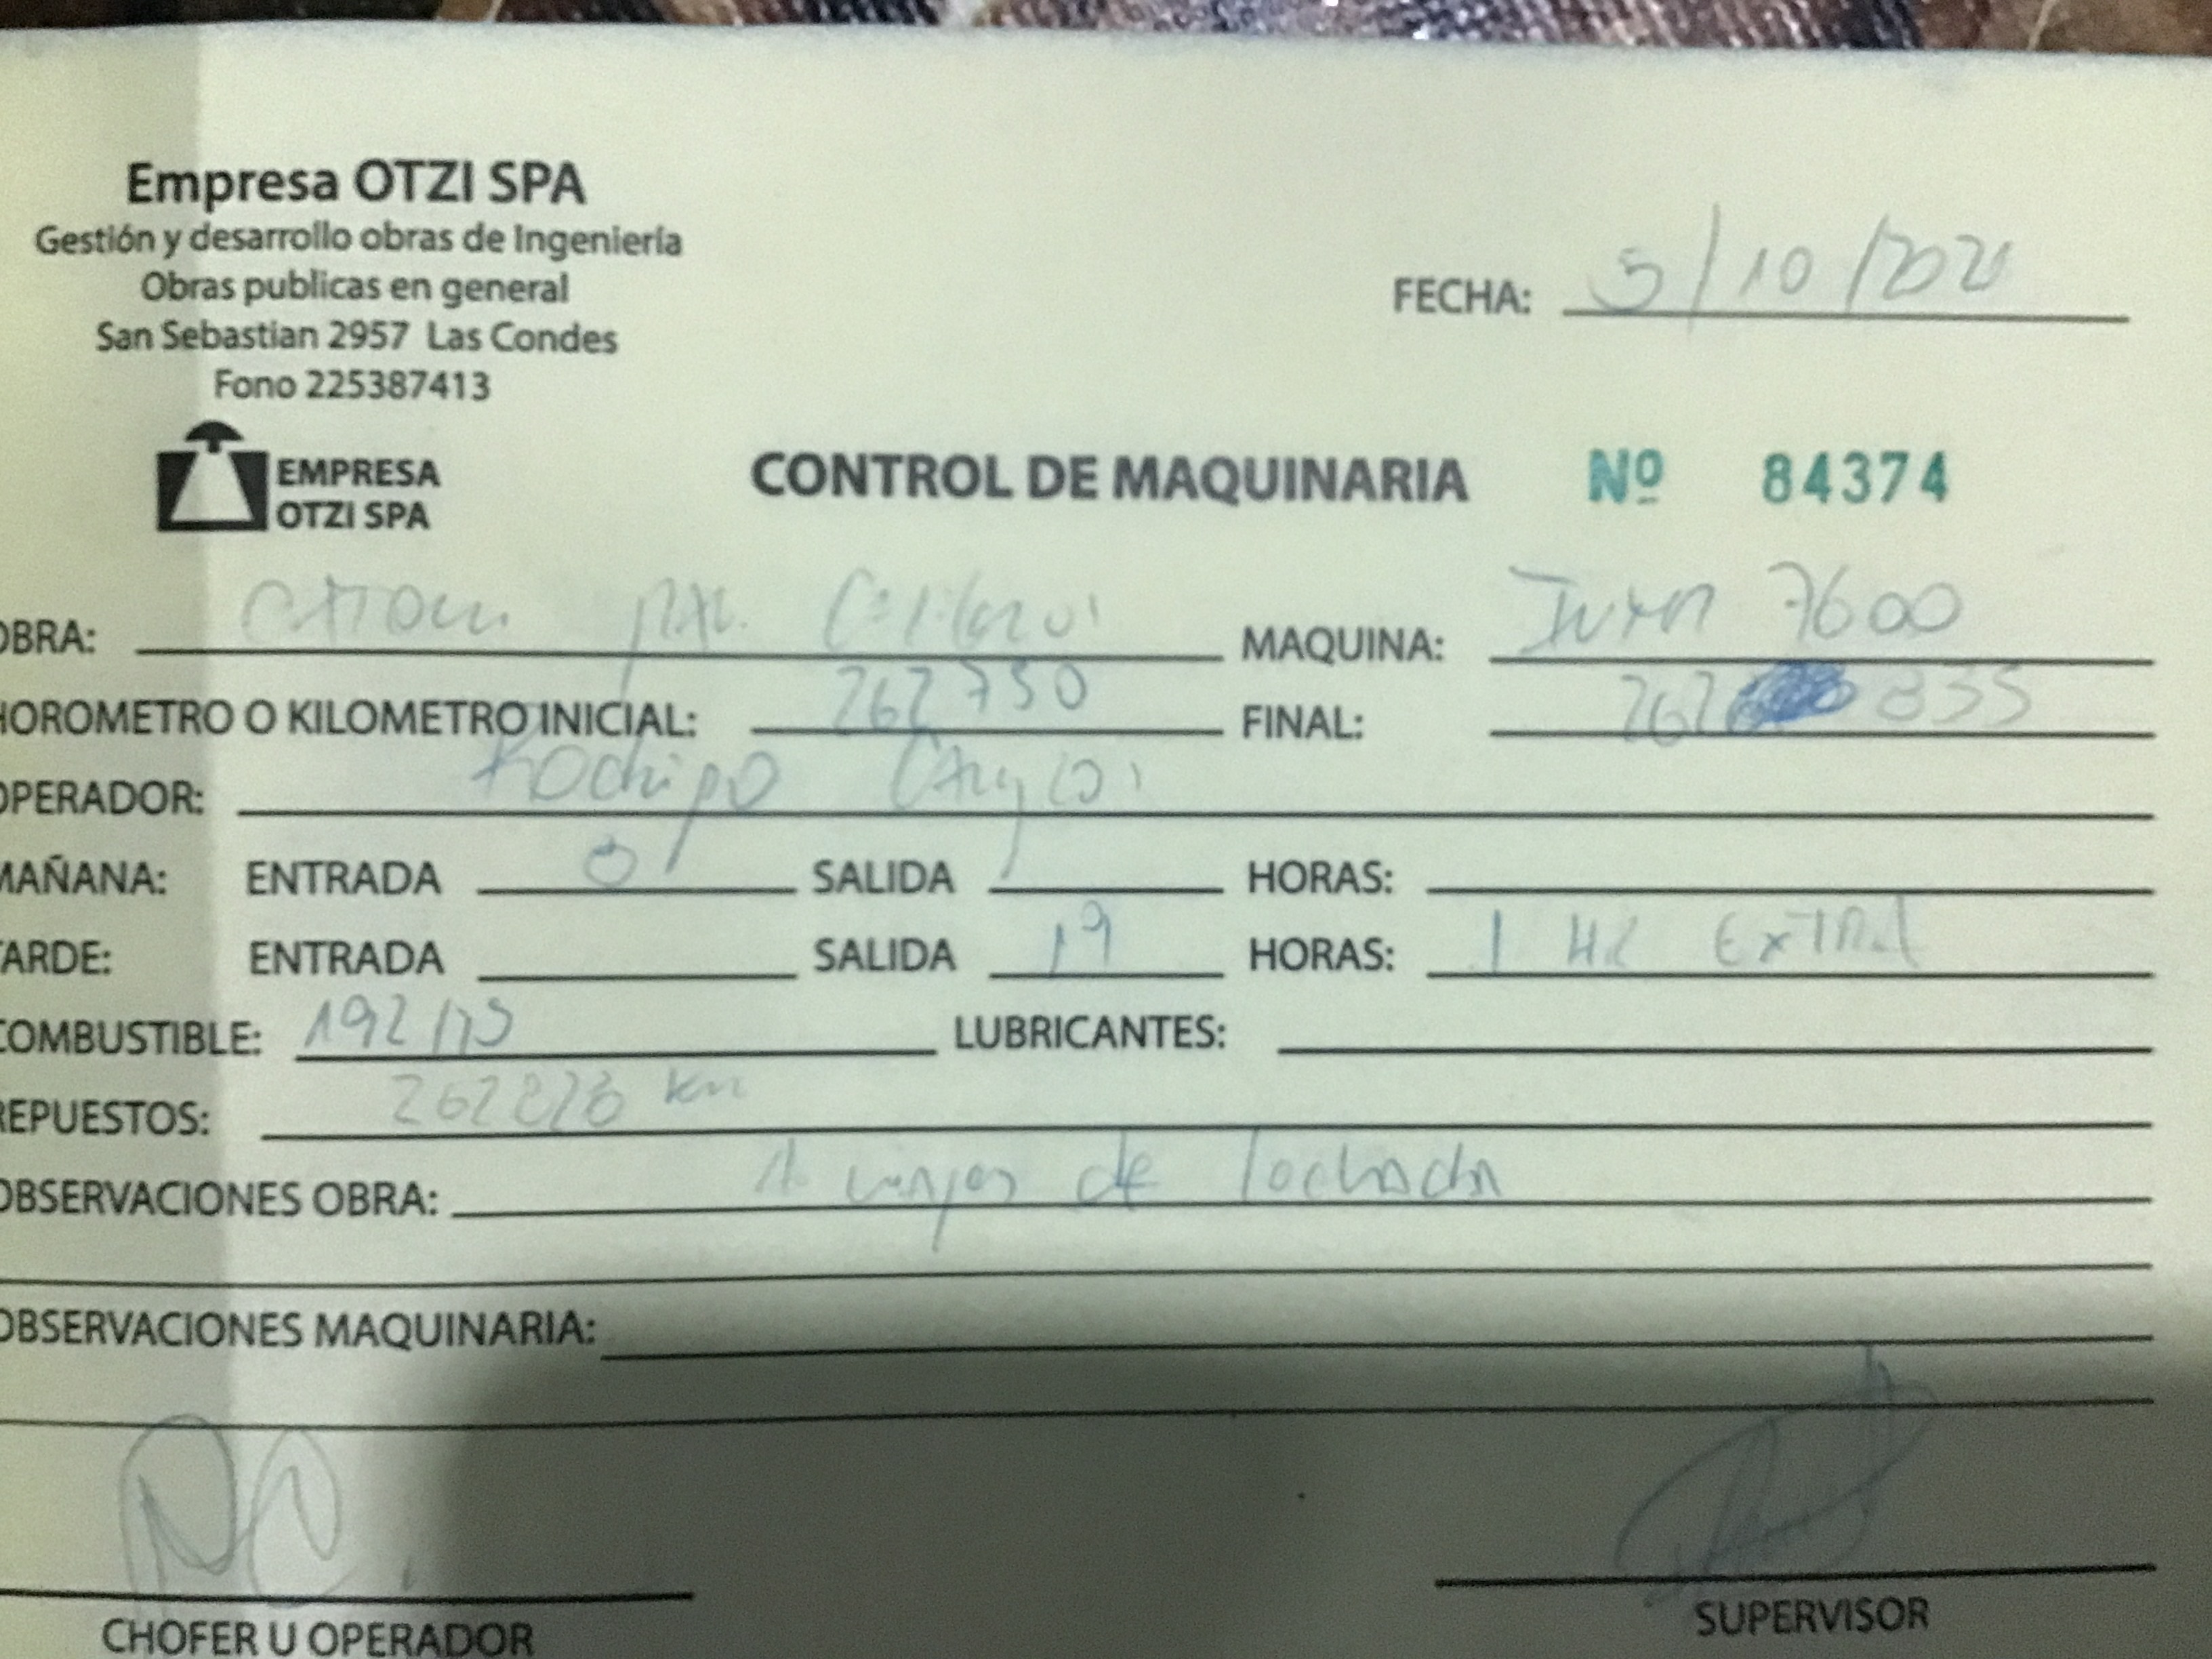 Empresa OTZI SPA
Gestión y desarrollo obras de Ingeniería
Obras publicas en general
San Sebastian 2957 Las Condes
Fono 225387413
FECHA: 5/10/2021
EMPRESA
OTZI SPA
CONTROL DE MAQUINARIA Nº 84374
OBRA: MAQUINA: 7600
HOROMETRO O KILOMETRO INICIAL: 262750 FINAL: 262 835
OPERADOR: Rodrigo
MAÑANA: ENTRADA 8 SALIDA HORAS:
TARDE: ENTRADA SALIDA 19 HORAS: 1 HR EXTRA
COMBUSTIBLE: 192 lts LUBRICANTES:
REPUESTOS: 262828 km
OBSERVACIONES OBRA: viajes de lechada
OBSERVACIONES MAQUINARIA:
CHOFER U OPERADOR SUPERVISOR